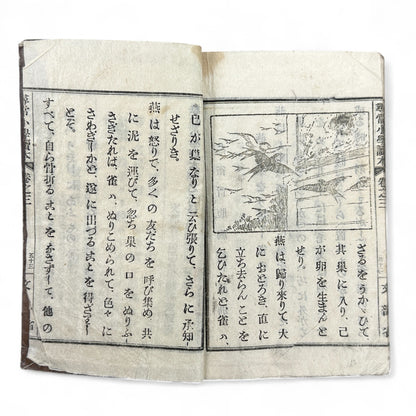 尋常小學讀本
卷之三
ざるをうかゞひて
其巣に入り、己
が卵を生まんと
せり。
燕は、歸り來りて、大
におどろき、直に
立ち去らんことを
乞ひたれど、雀は、
己が巣なりと云ひ張りて、さらに承知
せざりき。
燕は怒りて、多くの友だちを呼び集め、共
に泥を運びて、忽ち巣の口をぬりふ
さぎたれば、雀は、ぬりこめられて、色々に
さわぎしかど、遂に出づることを得ざりし
とぞ。
すべて、自ら骨折ることをなさずして、他の
尋常小學讀本
卷之三
五十三
文部省